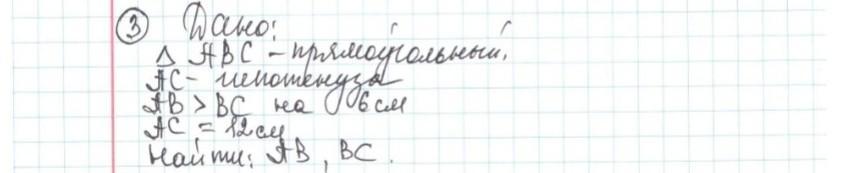 ③ Дано:
△ ABC - прямоугольный,
AC - гипотенуза
AB > BC на 6 см
AC = 12 см
Найти: AB, BC.